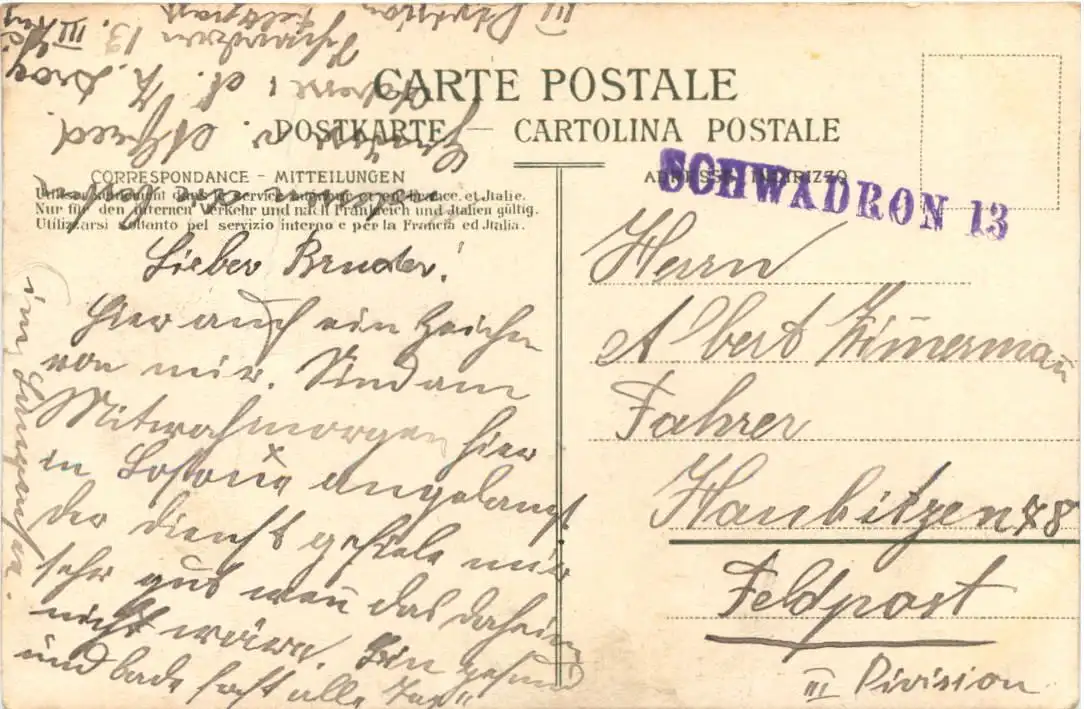 CARTE POSTALE
POSTKARTE — CARTOLINA POSTALE
CORRESPONDANCE - MITTEILUNGEN
Utilisable seulement dans le service interne et en France et Italie.
Nur für den internen Verkehr und nach Frankreich und Italien gültig.
Utilizzarsi soltanto pel servizio interno e per la Francia ed Italia.
Lieber Bruder!
Hier auch ein Zeichen
von mir. Sind am
Mitwochmorgen hier
in angelangt
der Dienst gefiele mir
sehr gut wen̄ das daheim
nicht wäre. Bin gesund
und bade fast alle Tag
im Langensee.
Gruss
Bruder Alfred
Adresse: A. Z. Drag
Schwadron 13. III
Feldpost
III Division
ADRESSE - INDIRIZZO
SCHWADRON 13
Herrn
Albert Zim̄erman̄
Fahrer
Haubitzen 78
Feldpost
III Division